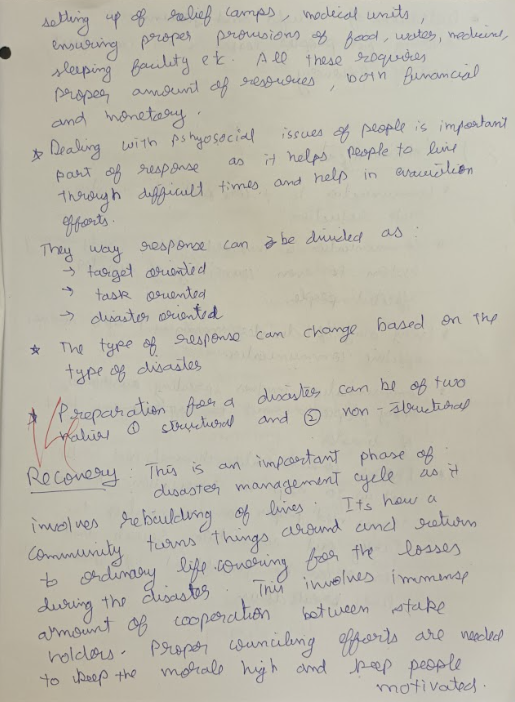 setting up of relief camps, medical units,
ensuring proper provisions of food, water, medicine,
sleeping facility etc. All these requires
proper amount of resources, both financial
and monetary.
* Dealing with pshyosocial issues of people is important
part of response as it helps people to live
through difficult times and help in evacuation
efforts.
They way response can be divided as :
→ target oriented
→ task oriented
→ disaster oriented
* The type of response can change based on the
type of disaster
* Preparation for a disaster can be of two
① structural and ② non-structural
Recovery : This is an important phase of
disaster management cycle as it
involves rebuilding of lives. Its how a
community turns things around and return
to ordinary life covering for the losses
during the disaster. This involves immense
amount of cooperation between stake
holders. Proper counciling efforts are needed
to keep the morale high and keep people
motivated.